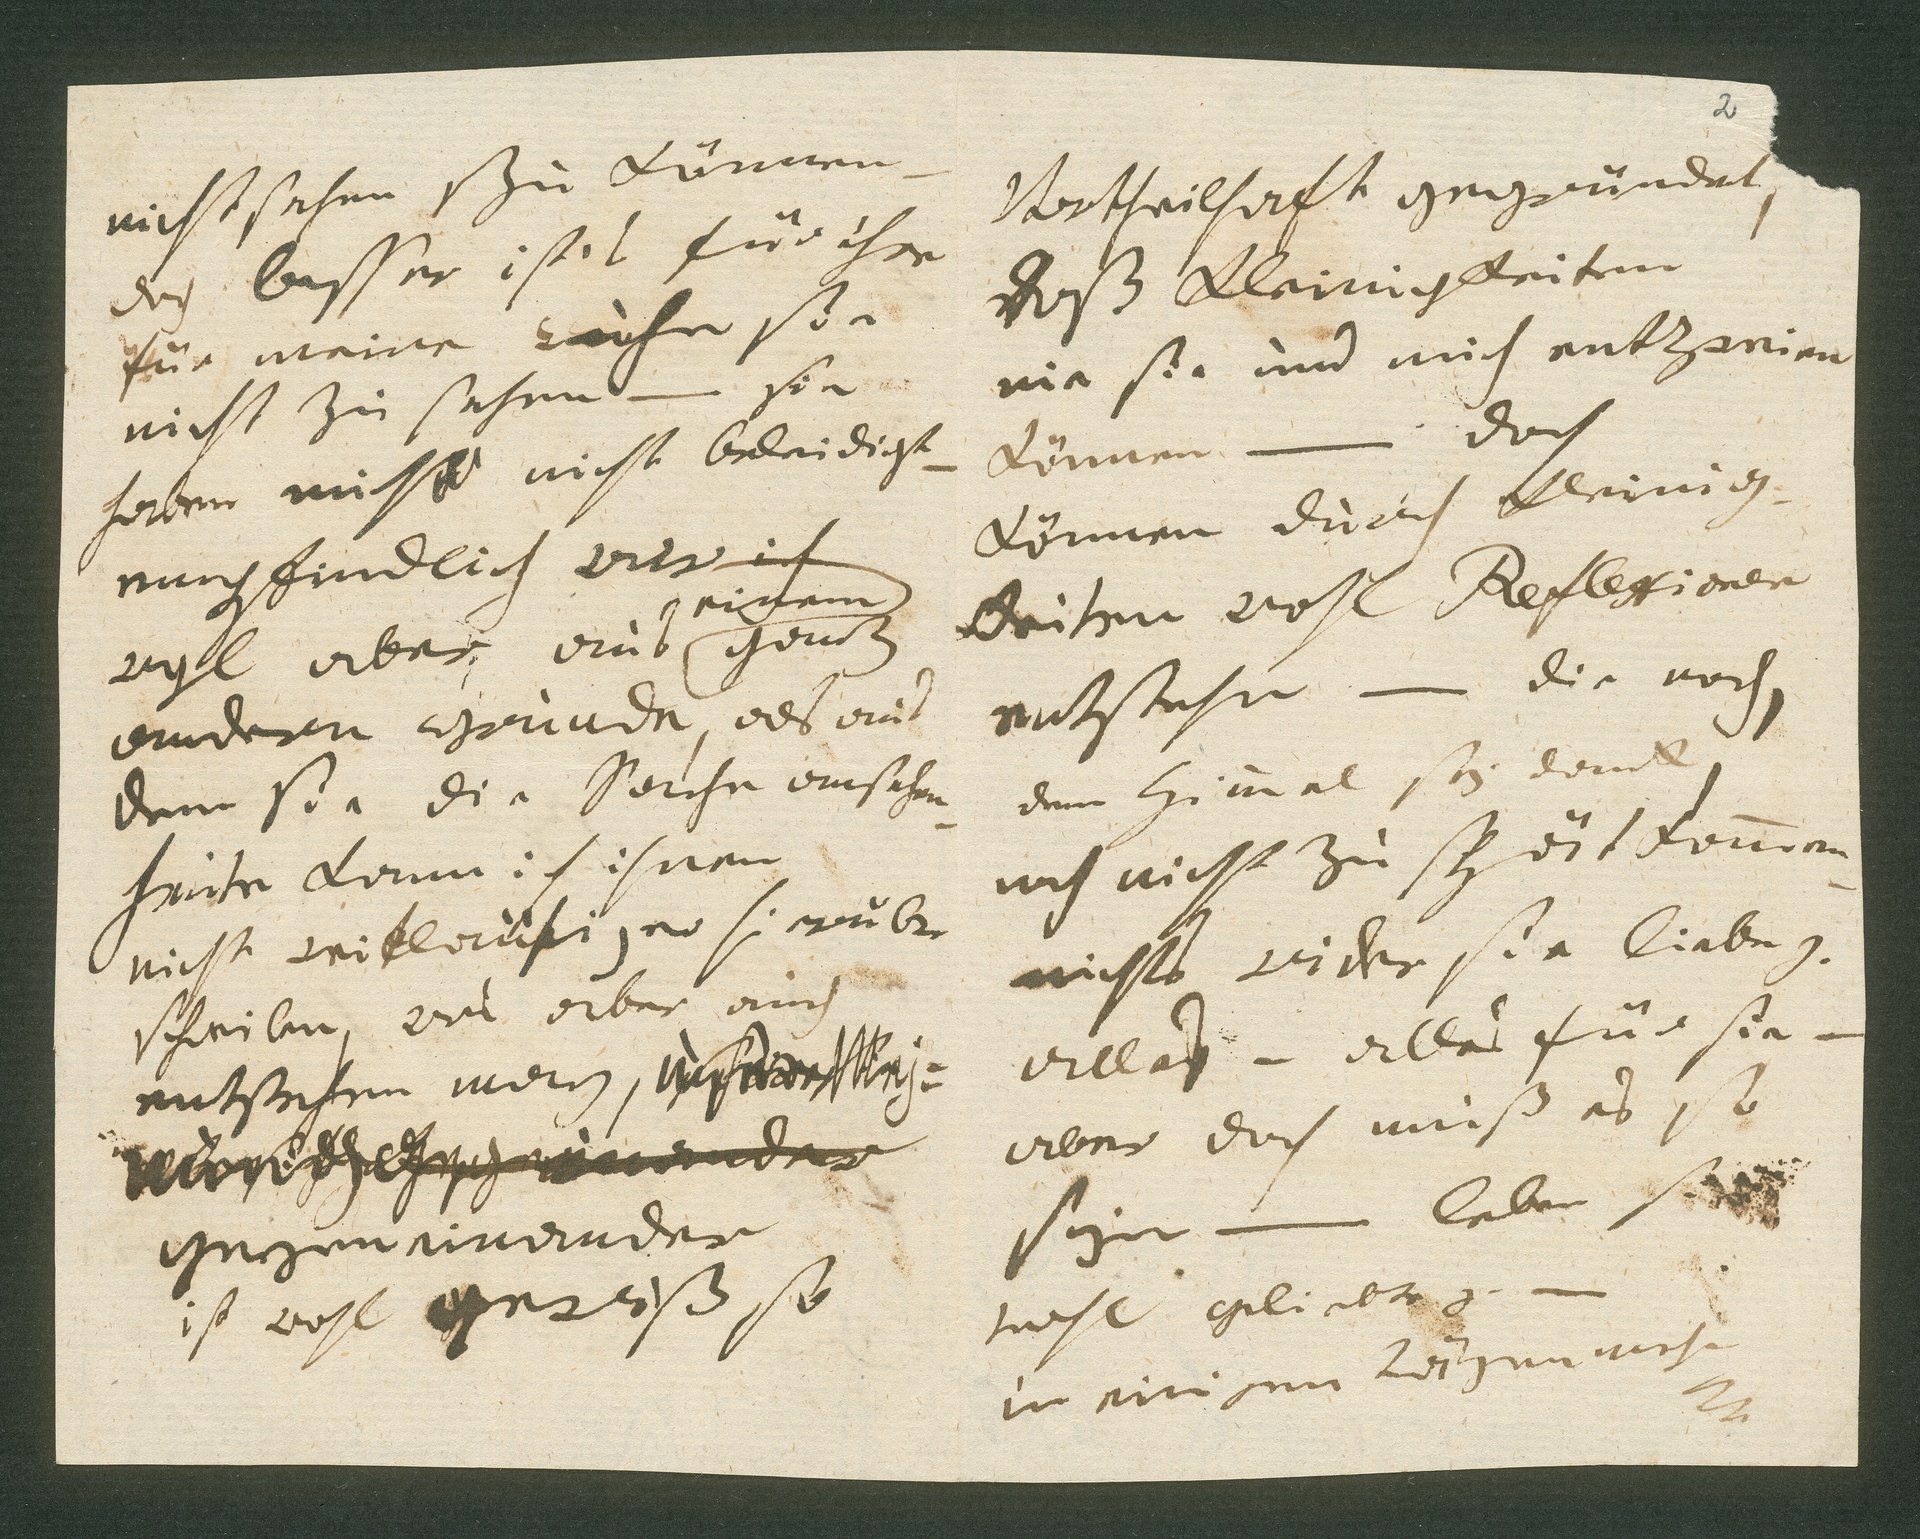 nicht sehen zu können –
doch besser ist's für ihre
für meine ruhe sie
nicht zu sehen — sie
haben mich nicht beleidigt –
empfindlich war ich
wohl aber, aus einem
ganz
andern grunde, als aus
dem sie die Sache ansehen –
heute kann ich ihnen
nicht weitläufiger hierüber
schreiben, was aber auch
entstehen mag, unsre
gegeneinander
ist wohl gewiß so
2
Vortheilhaft gegründet,
daß Kleinigkeiten
nie sie und mich entzweien
können — doch
können durch Kleinig-
keiten wohl Reflexionen
entstehn — die noch,
dem Himel sey dank,
noch nicht zu spät kommen –
nichts wider sie liebe g.
alles – alles für sie –
aber doch muß es so
seyn — leben sie
wohl geliebte g. —
in einigen Tägen mehr